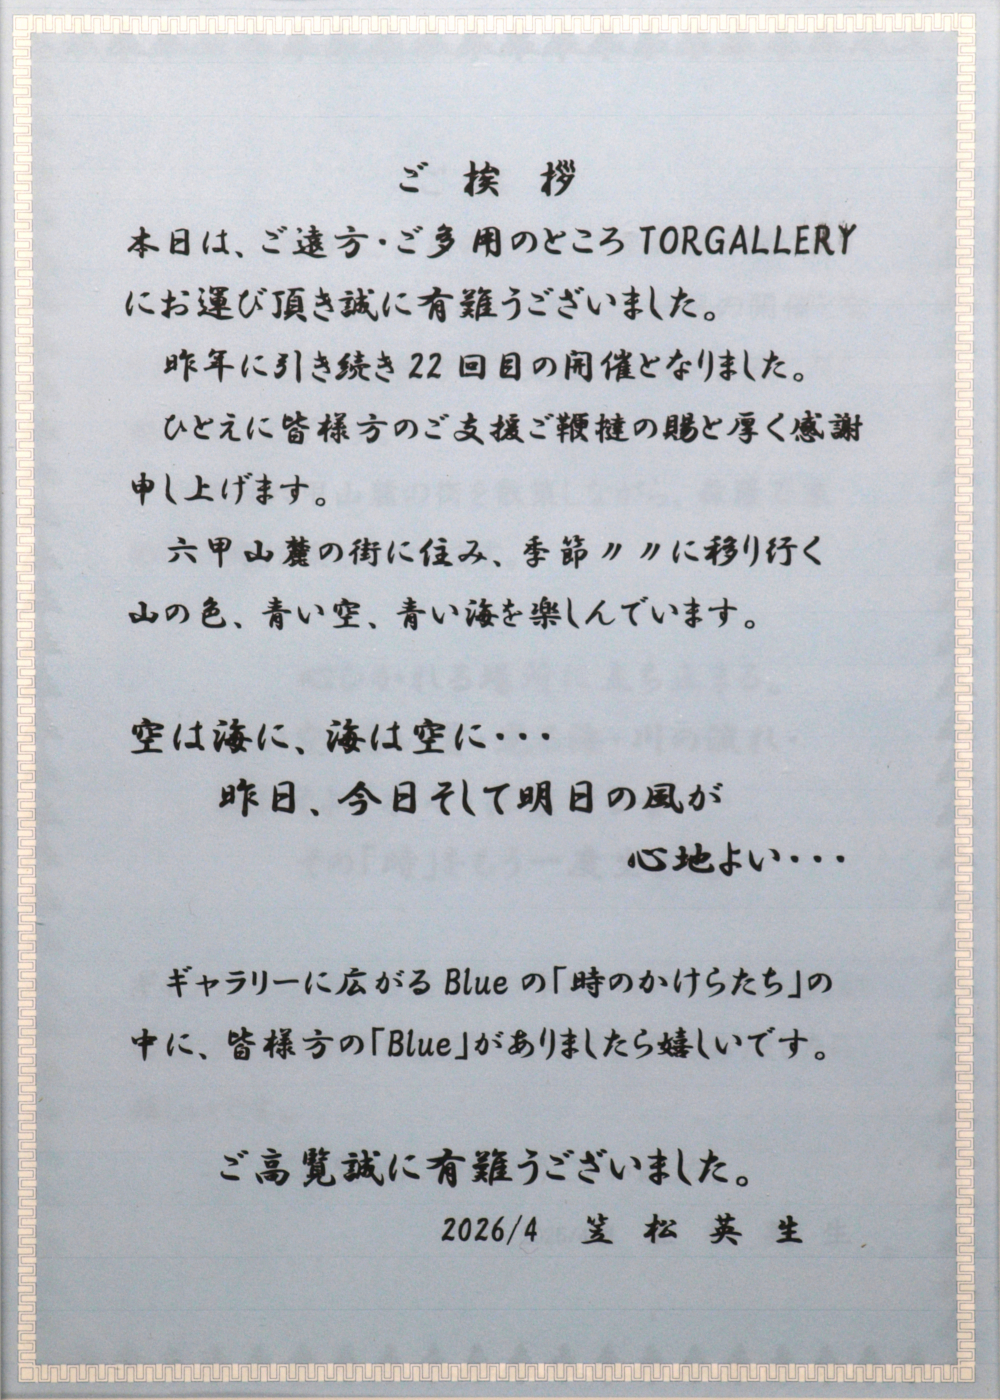 ご挨拶
本日は、ご遠方・ご多用のところTORGALLERY
にお運び頂き誠に有難うございました。
昨年に引き続き22回目の開催となりました。
ひとえに皆様方のご支援ご鞭撻の賜と厚く感謝
申し上げます。
六甲山麓の街に住み、季節〃〃に移り行く
山の色、青い空、青い海を楽しんでいます。
空は海に、海は空に・・・
昨日、今日そして明日の風が
心地よい・・・
ギャラリーに広がるBlueの「時のかけらたち」の
中に、皆様方の「Blue」がありましたら嬉しいです。
ご高覧誠に有難うございました。
2026/4 笠松英生